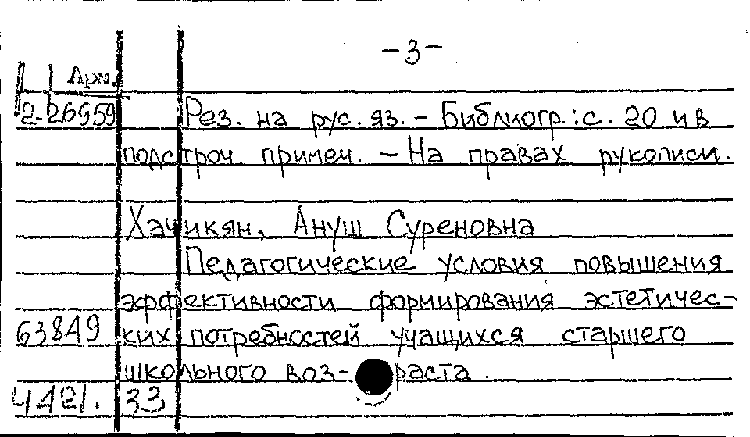 -3-
Арм.
2-26959 Рез. на рус. яз. - Библиогр.: с. 20 и в
подстроч. примеч. - На правах рукописи.
Хачикян, Ануш Суреновна
Педагогические условия повышения
эффективности формирования эстетичес-
63849 ких потребностей учащихся старшего
школьного воз-раста.
33